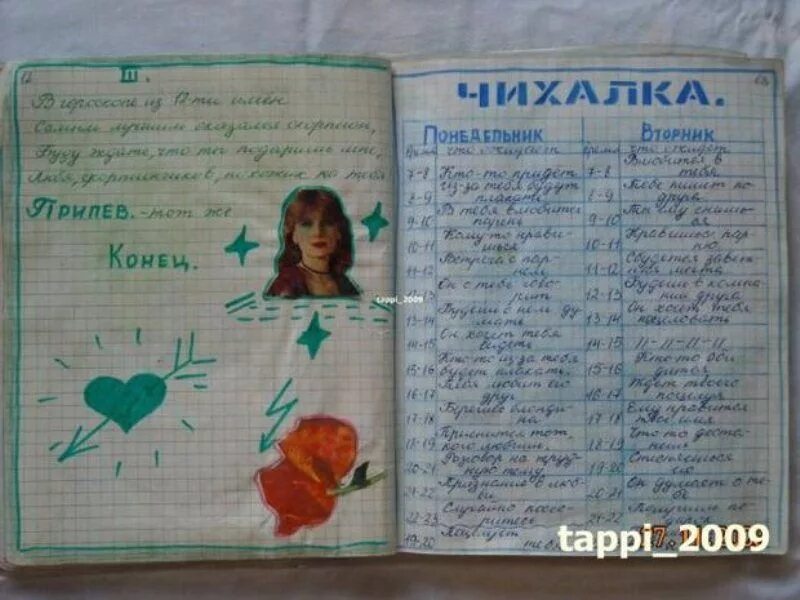 III.
В гороскопе из 12-ти имён
Самым лучшим оказался скорпион,
Буду ждать, что ты подаришь мне,
Любя, скорпиончиков, похожих на тебя
Припев. - тот же
Конец.
tappi_2009
Чихалка.
Понедельник
время что ожидает
7-8 Кто-то придёт
8-9 Из-за тебя будут плакать
9-10 В тебя влюбится парень
10-11 Кому-то нравишься
11-12 Встреча с парнем
12-13 Он с тебе говорит
13-14 Будешь о нём думать
14-15 Он хочет тебя видеть
15-16 Кто-то из-за тебя будет плакать.
16-17 Тебя любит его друг
17-18 Берегись блондина
18-19 Приснится тот, кого любишь.
20-21 Разговор на трудную тему
21-22 Признание в любви
22-23 Случайно поссоритесь
19-20 Поцелует
Вторник
время что ожидает
7-8 Влюбится в тебя
8-9 Тебе пишет подруга
9-10 Ты ему снишься
10-11 Нравишься парню
11-12 Сбудется заветная мечта
12-13 Будешь в компании друга
13-14 Он хочет тебя поцеловать
14-15 11-11-11-11
15-16 Кто-то обидится
16-17 Ждёт твоего поцелуя
17-18 Ему нравится твоё имя
18-19 Что-то достанешь
19-20 Стесняешься его
20-21 Он думает о тебе
21-22 Получишь
tappi_2009